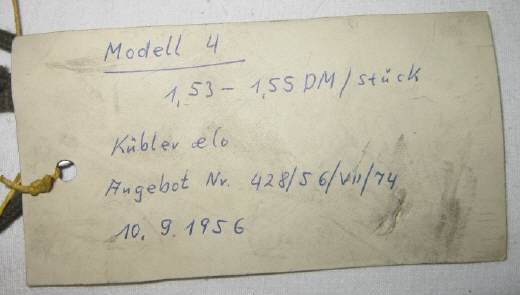 Modell 4
1,53 - 1,55 DM/stück
Kübler
Angebot Nr. 428/56/VII/74
10. 9. 1956